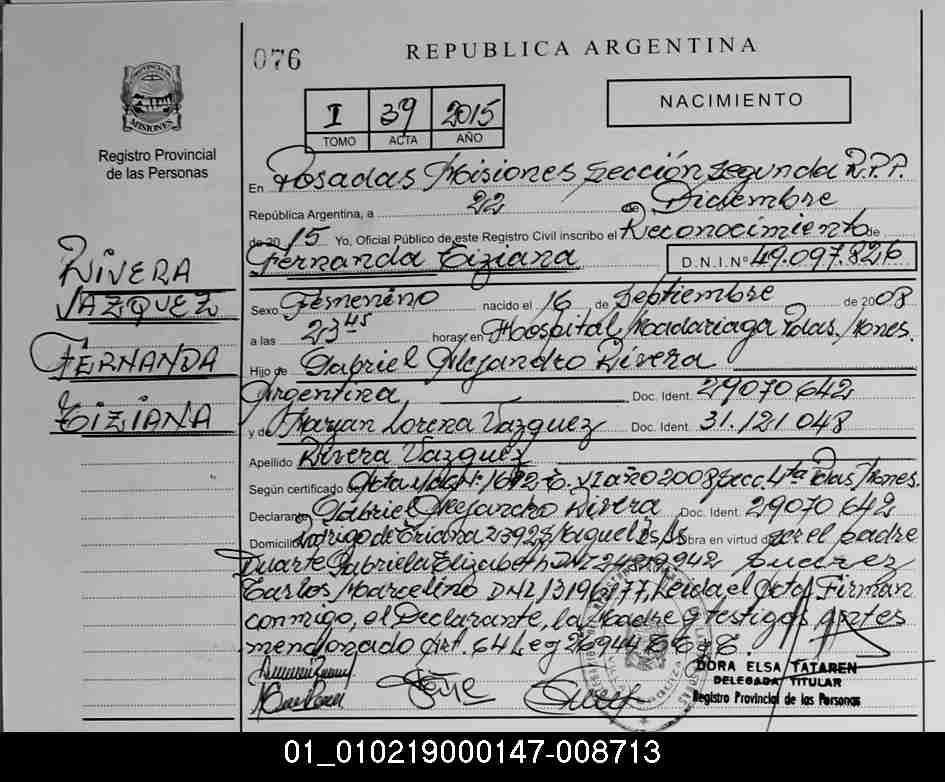 076
REPUBLICA ARGENTINA
NACIMIENTO
I 39 2015
TOMO ACTA AÑO
PROVINCIA DE
MISIONES
Registro Provincial
de las Personas
En Posadas Misiones Sección Segunda R.P.P.
República Argentina, a 22 de Diciembre
de 2015 Yo, Oficial Público de este Registro Civil inscribo el Reconocimiento de
Fernanda Tiziana D.N.I.Nº 49.097.826
RIVERA
VAZQUEZ
FERNANDA
TIZIANA
Sexo Femenino nacido el 16 de Septiembre de 2008
a las 23 45 horas, en Hospital Madariaga Pdas. Mones.
Hijo de Gabriel Alejandro Rivera
Argentina, Doc. Ident. 29070642
y de Maryan Lorena Vazquez Doc. Ident. 31.121048
Apellido Rivera Vazquez
Según certificado Acta Nº 1692 T. VI año 2008 Secc. 4ta Pdas. Mones.
Declarante Gabriel Alejandro Rivera Doc. Ident. 29070642
Domicilio Rodrigo de Triana 2392 Obra en virtud de ser el padre
Duarte Gabriela Elizabeth DNI
Carlos Marcelino DNI Leida el Acta, Firman
conmigo, el Declarante, la Madre y testigos antes
mencionado Art. 64 Ley 26994
DORA ELSA TATAREN
DELEGADA TITULAR
Registro Provincial de las Personas
01_010219000147-008713